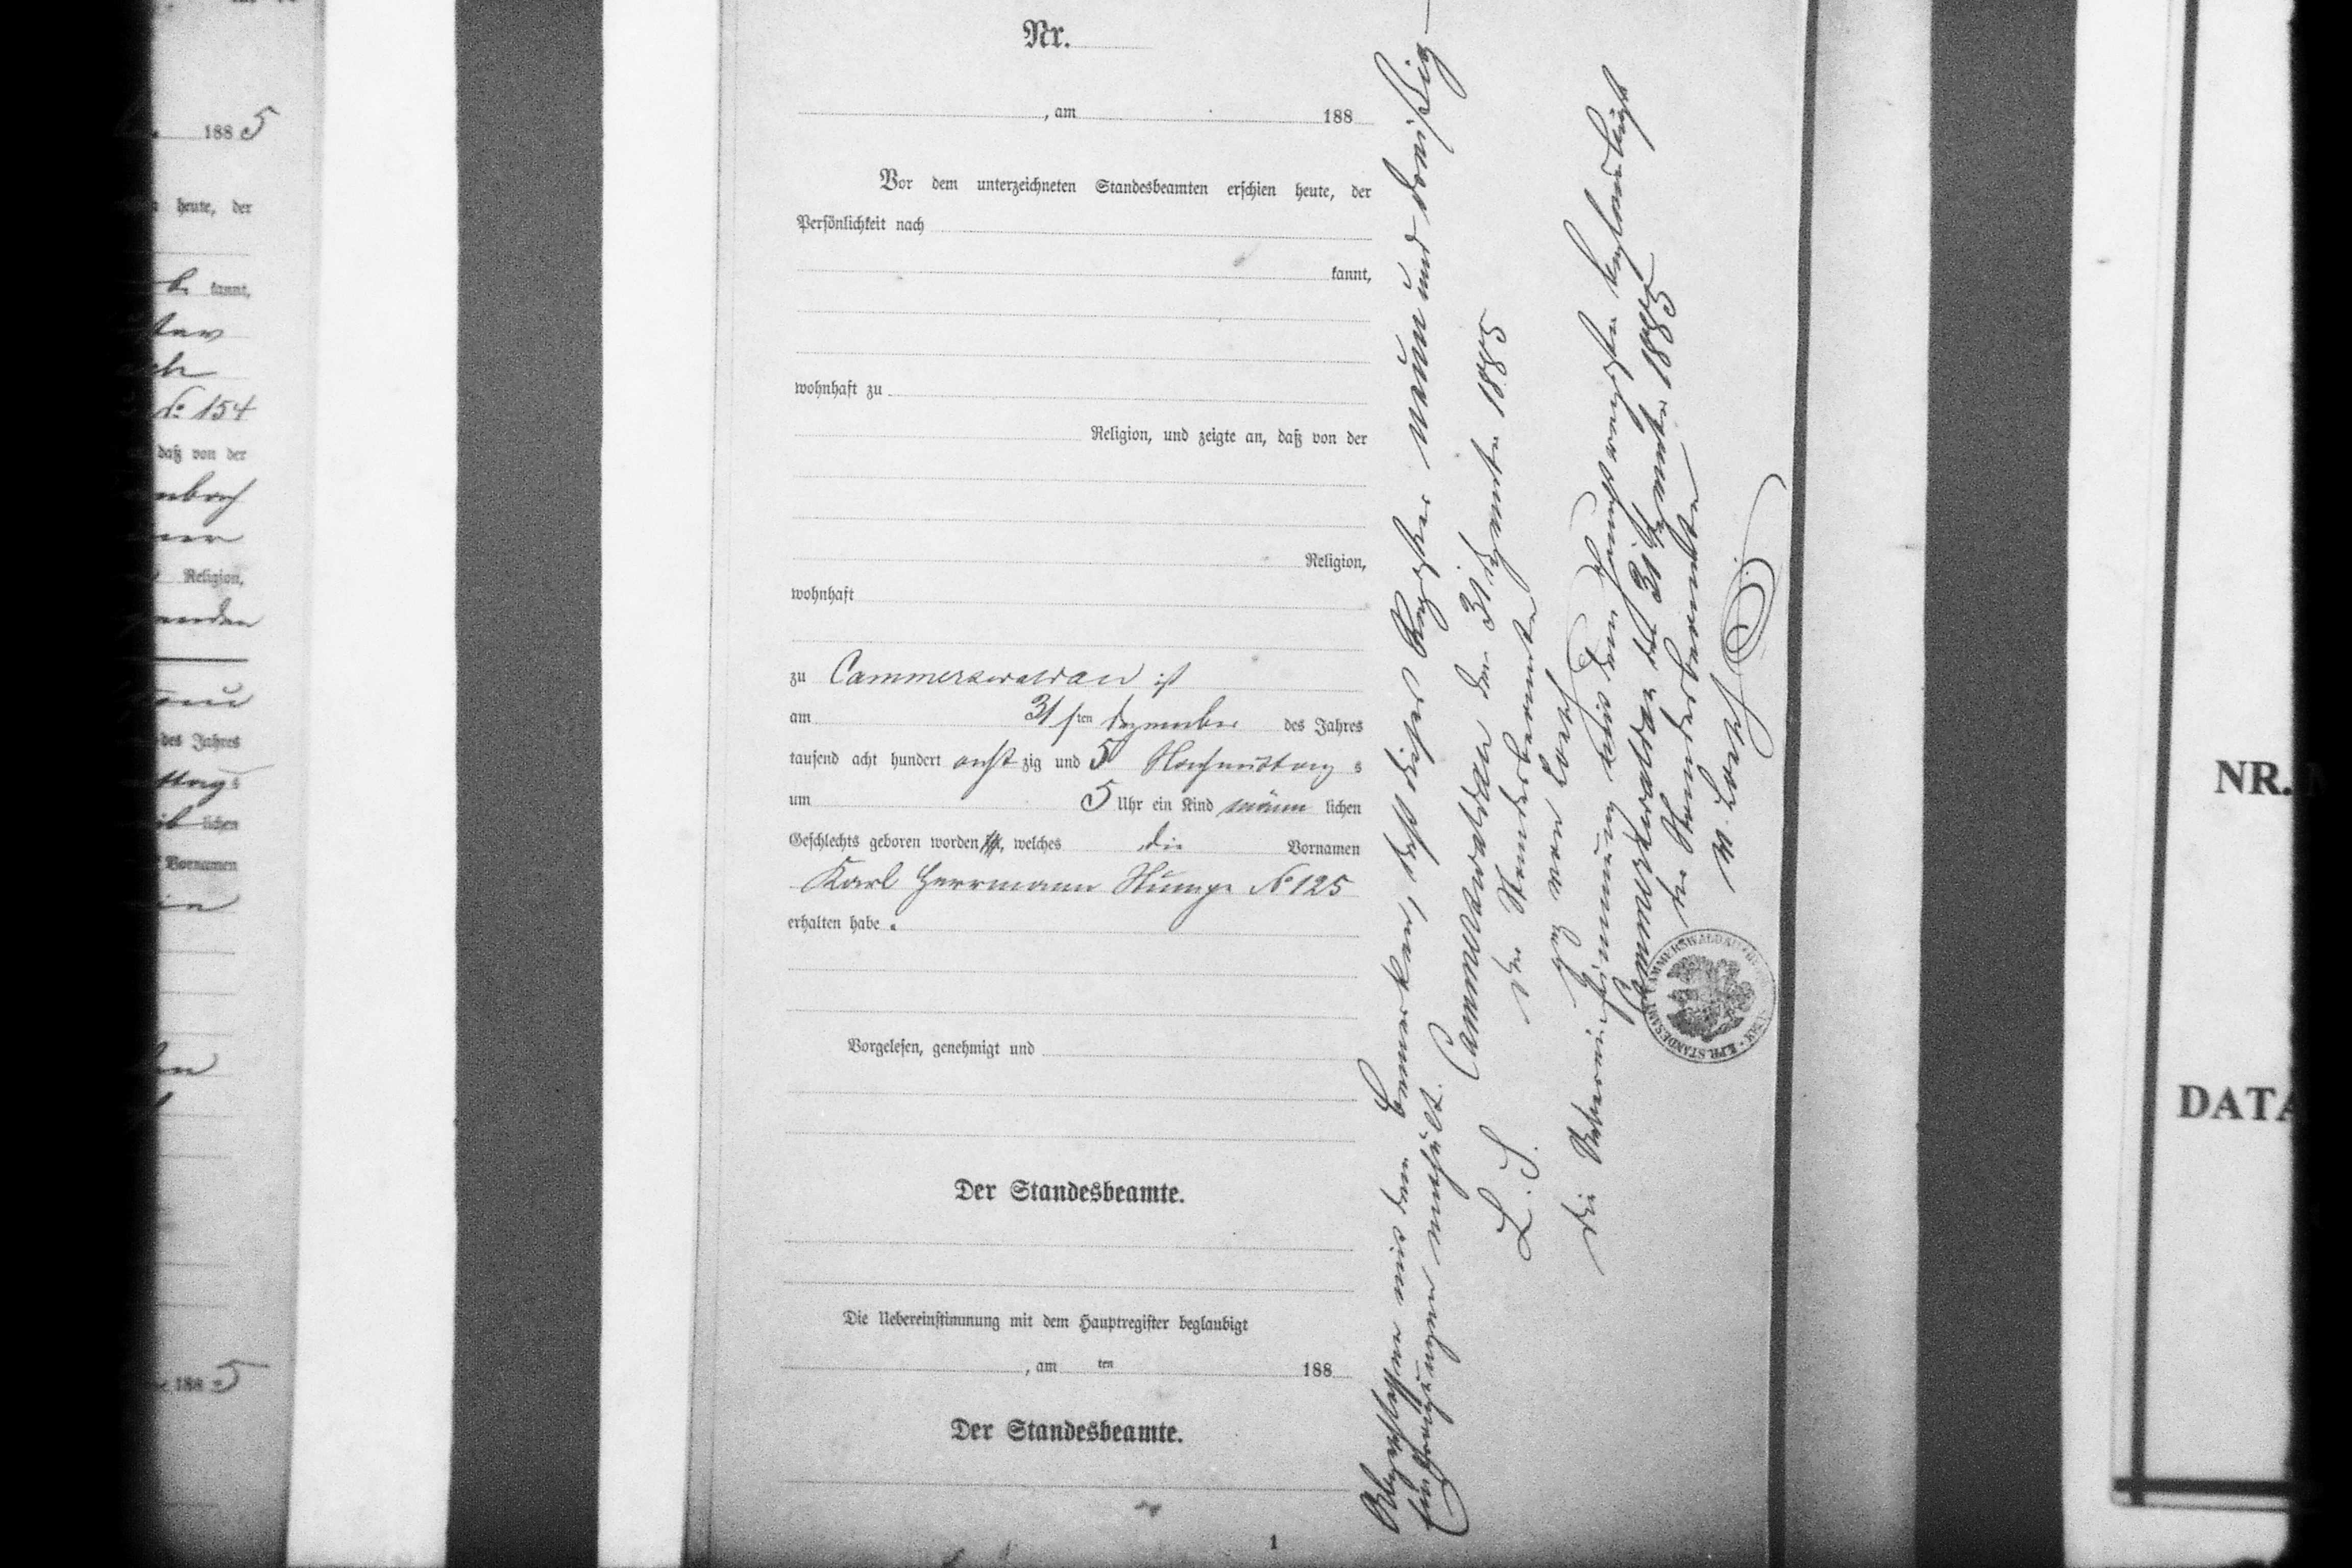 188 5
heute, der
b. kannt,
No 154
daß von der
Religion,
des Jahres
lichen
Vornamen
188 5
Nr.
, am 188
Vor dem unterzeichneten Standesbeamten erschien heute, der
Persönlichkeit nach
kannt,
wohnhaft zu
Religion, und zeigte an, daß von der
Religion,
wohnhaft
zu Cammerswaldau ist
am 31sten Dezember des Jahres
tausend acht hundert achtzig und 5 Nachmittags
um 5 Uhr ein Kind männlichen
Geschlechts geboren worden ist, welches die Vornamen
Karl Herrmann Stumpe No 125
erhalten habe.
Vorgelesen, genehmigt und
Der Standesbeamte.
Die Uebereinstimmung mit dem Hauptregister beglaubigt
, am ten 188
Der Standesbeamte.
1
Abgeschlossen mit dem Bemerken, daß dieses Register neun und dreißig
Eintragungen enthält. Cammerswaldau den 31. Dezember 1885
L. S. Der Standesbeamte
gez. von Loesch
Die Uebereinstimmung mit dem Hauptregister beglaubigt
Cammerswaldau den 31 Dezember 1885
Der Standesbeamte
v. Loesch
NR.
DATA